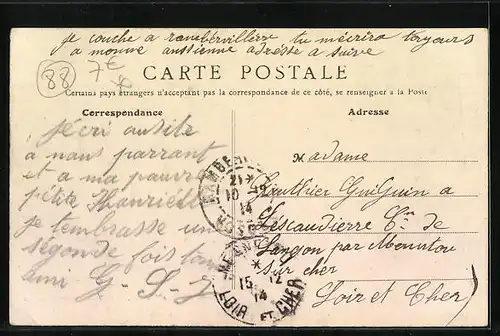 je couche a rambervillère tu mécrira toujours
a monne anssienne adresse a suive
88
7€
CARTE POSTALE
Certains pays étrangers n'acceptent pas la correspondance de ce côté, se renseigner à la Poste
Correspondance
Adresse
jécri ausite
a nous parrant
et a ma pauvre
petite Hanriette
je tembrasse une
ségonde fois ton
ami G-S-J
RAMBER
21 *
10 12
14
VOSGES
Madame
Gauthier Guiguin a
Lescaudierre Cne de
Langon par Mennetou
sur cher
Loir et Cher
ME
*
15 12
14
LOIR ET CHER